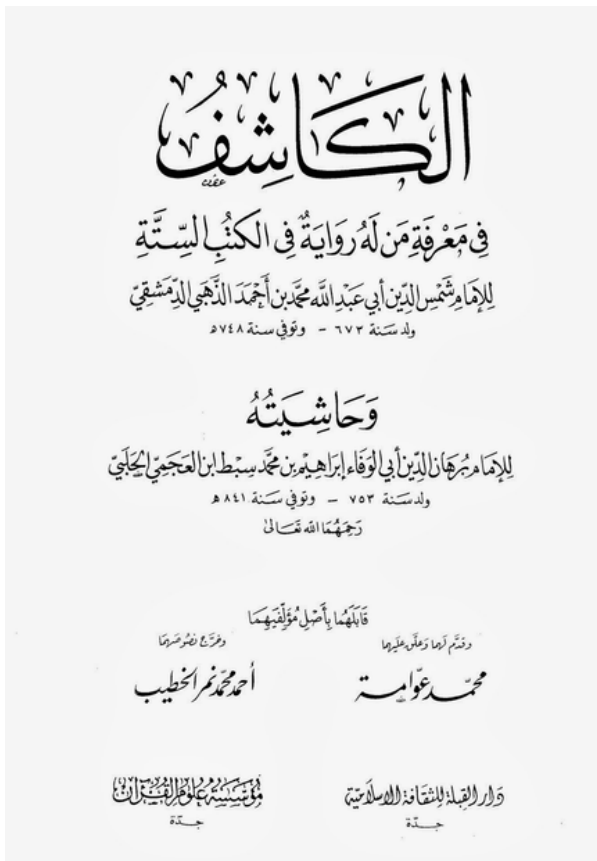 الكاشِفُ
فِي مَعْرِفَةِ مَن لَهُ رِوَايَةٌ فِي الكُتُبِ السِّتَّةِ
لِلإمَامِ شَمْسِ الدِّين أبي عَبْدِ الله محمَّد بن أَحْمَدَ الذَّهَبيِّ الدِّمَشقِيِّ
ولد سَنة ٦٧٣ - وتوفي سنة ٧٤٨ه
وَحَاشِيَتُهُ
لِلإمَام بُرهَان الدِّين أبي الوَفَاء إبراهيْم بن محمَّد سِبط ابن العَجَمِيّ الحَلَبيِّ
ولد سَنة ٧٥٣ - وتوفي سَنة ٨٤١ه
رَحِمَهُمَا الله تَعَالىٰ
قَابَلَهُمَا بِأَصْلِ مُؤَلِّفَيهِمَا
وقدَّم لَهما وَعلَّق عَليهما
وخرَّج نصُوصَهما
محمّد عوّامة
أحمد محمّد نمر الخطيب
دَار القِبلة للثقافة الاسلاميّة
مؤسَّسَة عُلوم القُرآن
جدّة
جدّة